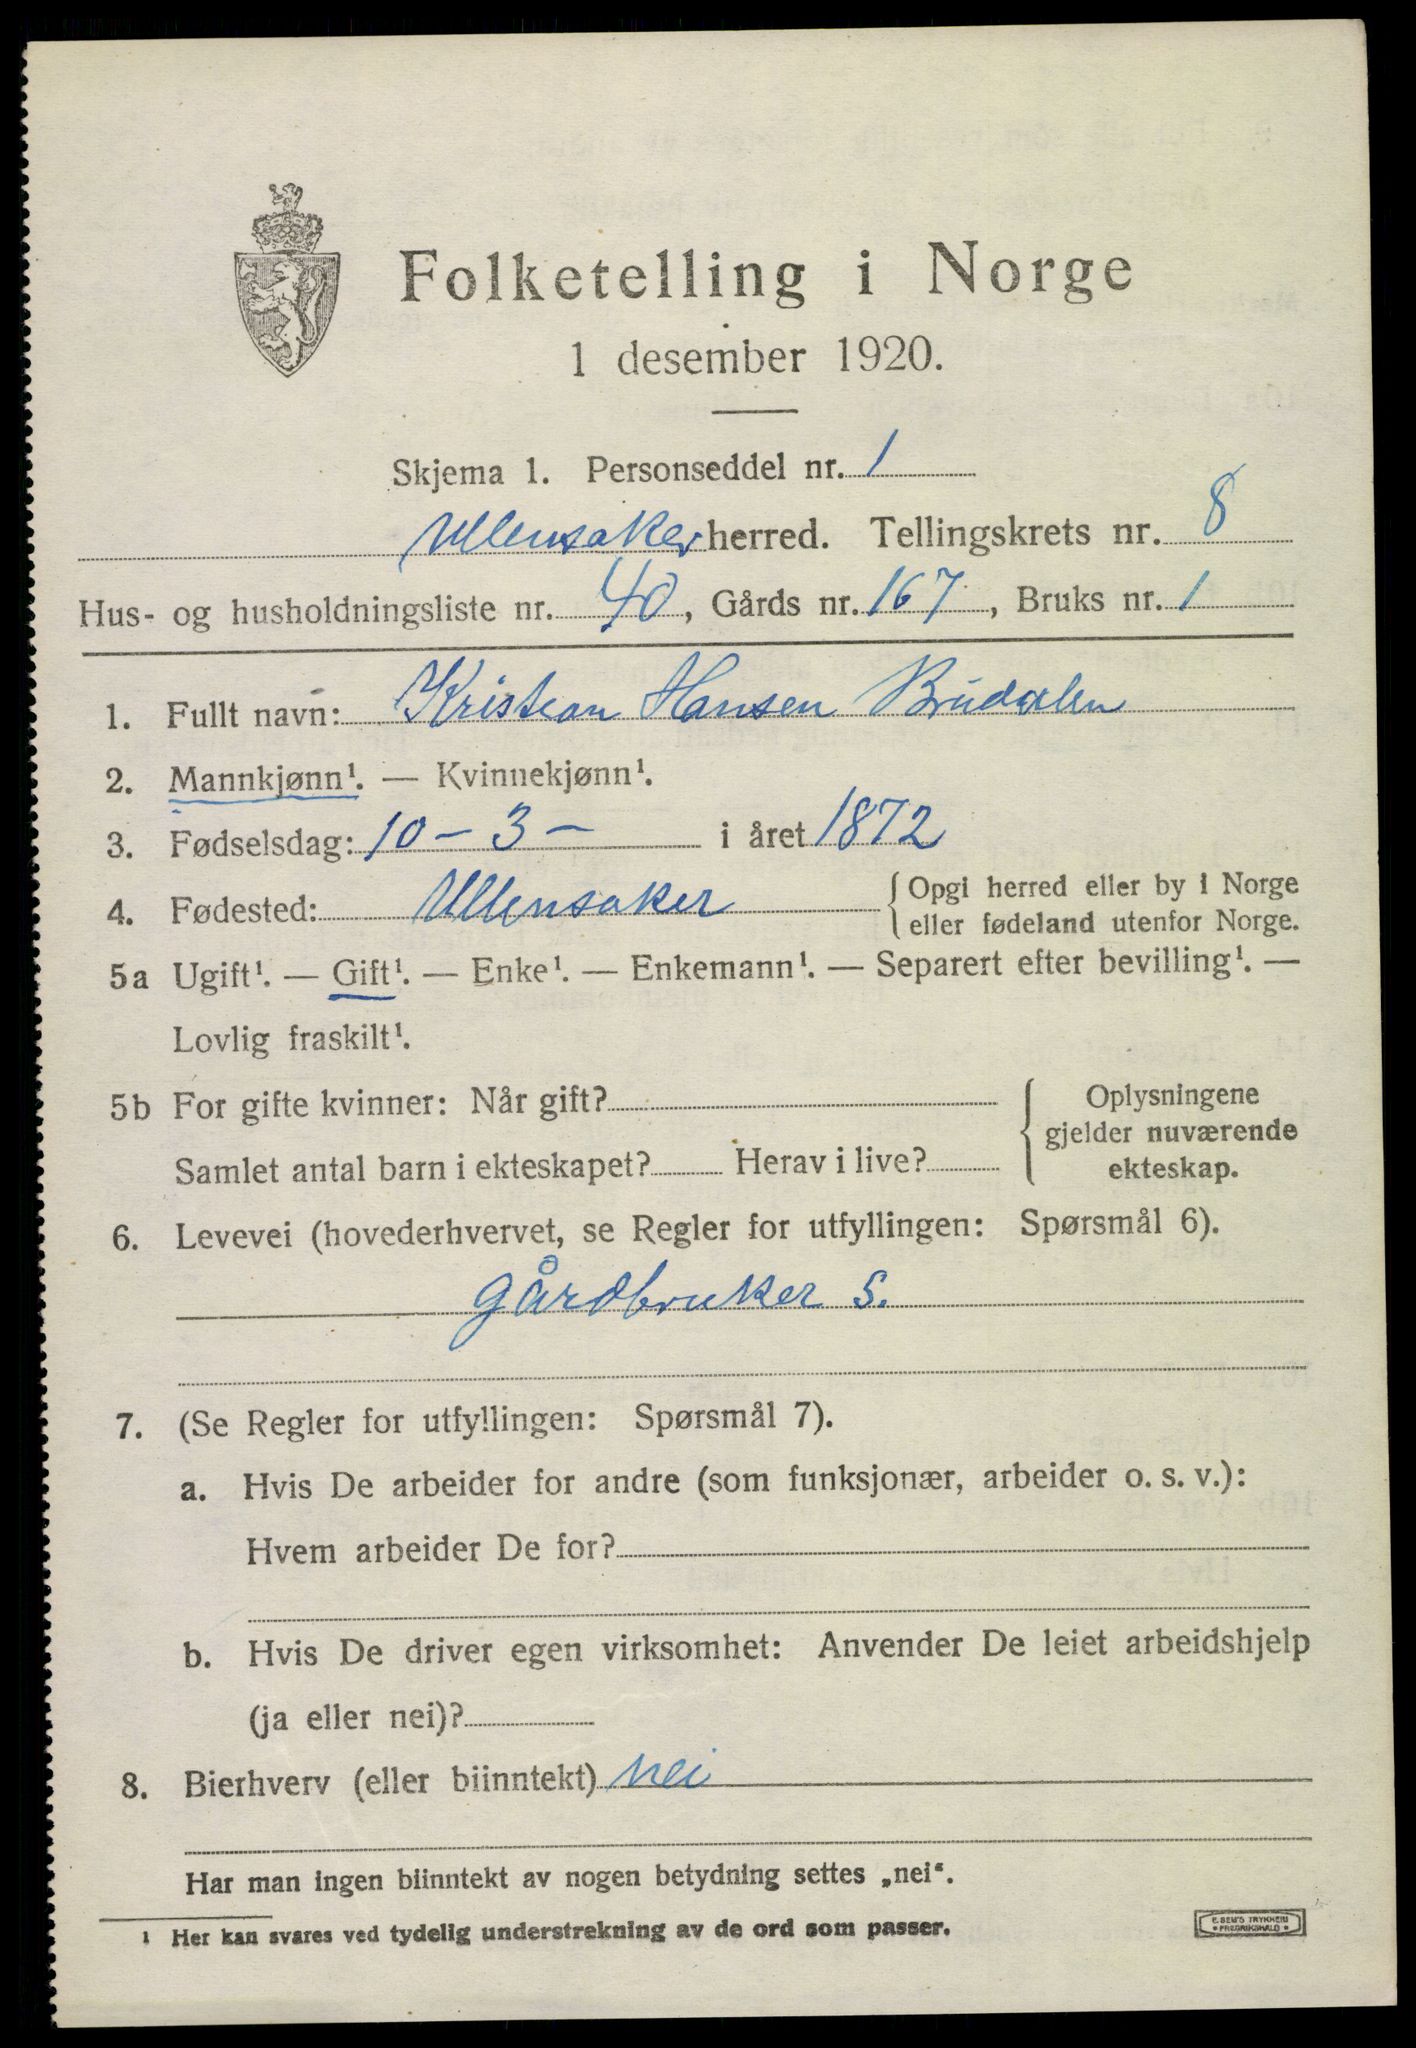 Folketelling i Norge
1 desember 1920.
Skjema 1. Personseddel nr. 1
Ullensaker herred. Tellingskrets nr. 8
Hus- og husholdningsliste nr. 40, Gårds nr. 167, Bruks nr. 1
1. Fullt navn: Kristian Hansen Brudalen
2. Mannkjønn¹. — Kvinnekjønn¹.
3. Fødselsdag: 10 - 3 - i året 1872
4. Fødested: Ullensaker { Opgi herred eller by i Norge
eller fødeland utenfor Norge.
5a Ugift¹. — Gift¹. — Enke¹. — Enkemann¹. — Separert efter bevilling¹. —
Lovlig fraskilt¹.
5b For gifte kvinner: Når gift?
Samlet antal barn i ekteskapet? Herav i live?
Oplysningene
gjelder nuværende
ekteskap.
6. Levevei (hovederhvervet, se Regler for utfyllingen: Spørsmål 6).
gårdbruker S.
7. (Se Regler for utfyllingen: Spørsmål 7).
a. Hvis De arbeider for andre (som funksjonær, arbeider o. s. v.):
Hvem arbeider De for?
b. Hvis De driver egen virksomhet: Anvender De leiet arbeidshjelp
(ja eller nei)?
8. Bierhverv (eller biinntekt) nei
Har man ingen biinntekt av nogen betydning settes „nei“.
¹ Her kan svares ved tydelig understrekning av de ord som passer.
E. SEM'S TRYKKERI
* FREDRIKSHALD *